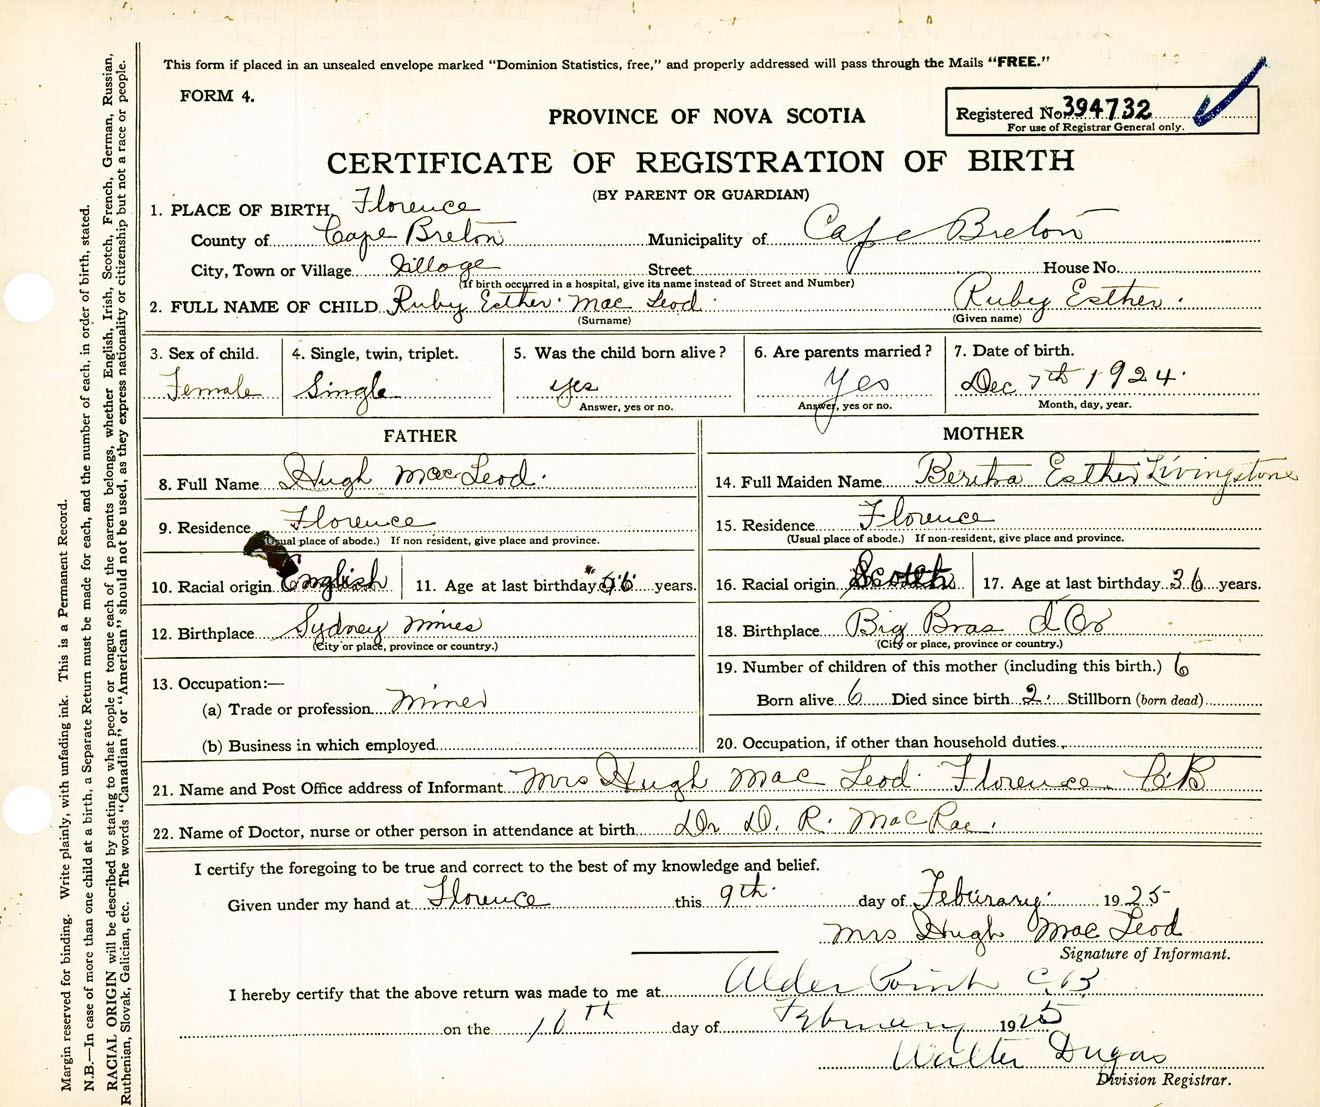 This form if placed in an unsealed envelope marked "Dominion Statistics, free," and properly addressed will pass through the Mails "FREE."
FORM 4.
Registered No. 394732
For use of Registrar General only.
PROVINCE OF NOVA SCOTIA
CERTIFICATE OF REGISTRATION OF BIRTH
(BY PARENT OR GUARDIAN)
1. PLACE OF BIRTH, Florence
County of Cape Breton Municipality of Cape Breton
City, Town or Village Village Street House No.
(If birth occurred in a hospital, give its name instead of Street and Number)
2. FULL NAME OF CHILD Ruby Esther Mac Leod Ruby Esther
(Surname) (Given name)
3. Sex of child. 4. Single, twin, triplet. 5. Was the child born alive? 6. Are parents married? 7. Date of birth.
Female Single yes Yes Dec 7th 1924
Answer, yes or no. Answer, yes or no. Month, day, year.
FATHER MOTHER
8. Full Name Hugh MacLeod. 14. Full Maiden Name Bertha Esther Livingstone
9. Residence Florence 15. Residence Florence
(Usual place of abode.) If non resident, give place and province. (Usual place of abode.) If non-resident, give place and province.
10. Racial origin English 11. Age at last birthday years. 16. Racial origin Scotch 17. Age at last birthday 36 years.
12. Birthplace Sydney Mines 18. Birthplace Big Bras d'Or
(City or place, province or country.) (City or place, province or country.)
19. Number of children of this mother (including this birth.) 6
13. Occupation:—
(a) Trade or profession Miner Born alive 6 Died since birth 2 Stillborn (born dead)
(b) Business in which employed 20. Occupation, if other than household duties.
21. Name and Post Office address of Informant Mrs Hugh Mac Leod Florence C.B
22. Name of Doctor, nurse or other person in attendance at birth Dr D. R. MacRae.
I certify the foregoing to be true and correct to the best of my knowledge and belief.
Given under my hand at Florence this 9th day of Feburary 1925
Mrs Hugh Mac Leod
Signature of Informant.
I hereby certify that the above return was made to me at Alder Point C.B.
on the 16TH day of February 1925
Walter Dugas
Division Registrar.
Margin reserved for binding. Write plainly, with unfading ink. This is a Permanent Record.
N.B.—In case of more than one child at a birth, a Separate Return must be made for each, and the number of each, in order of birth, stated.
RACIAL ORIGIN will be described by stating to what people or tongue each of the parents belongs, whether English, Irish, Scotch, French, German, Russian,
Ruthenian, Slovak, Galician, etc. The words "Canadian" or "American" should not be used, as they express nationality or citizenship but not a race or people.